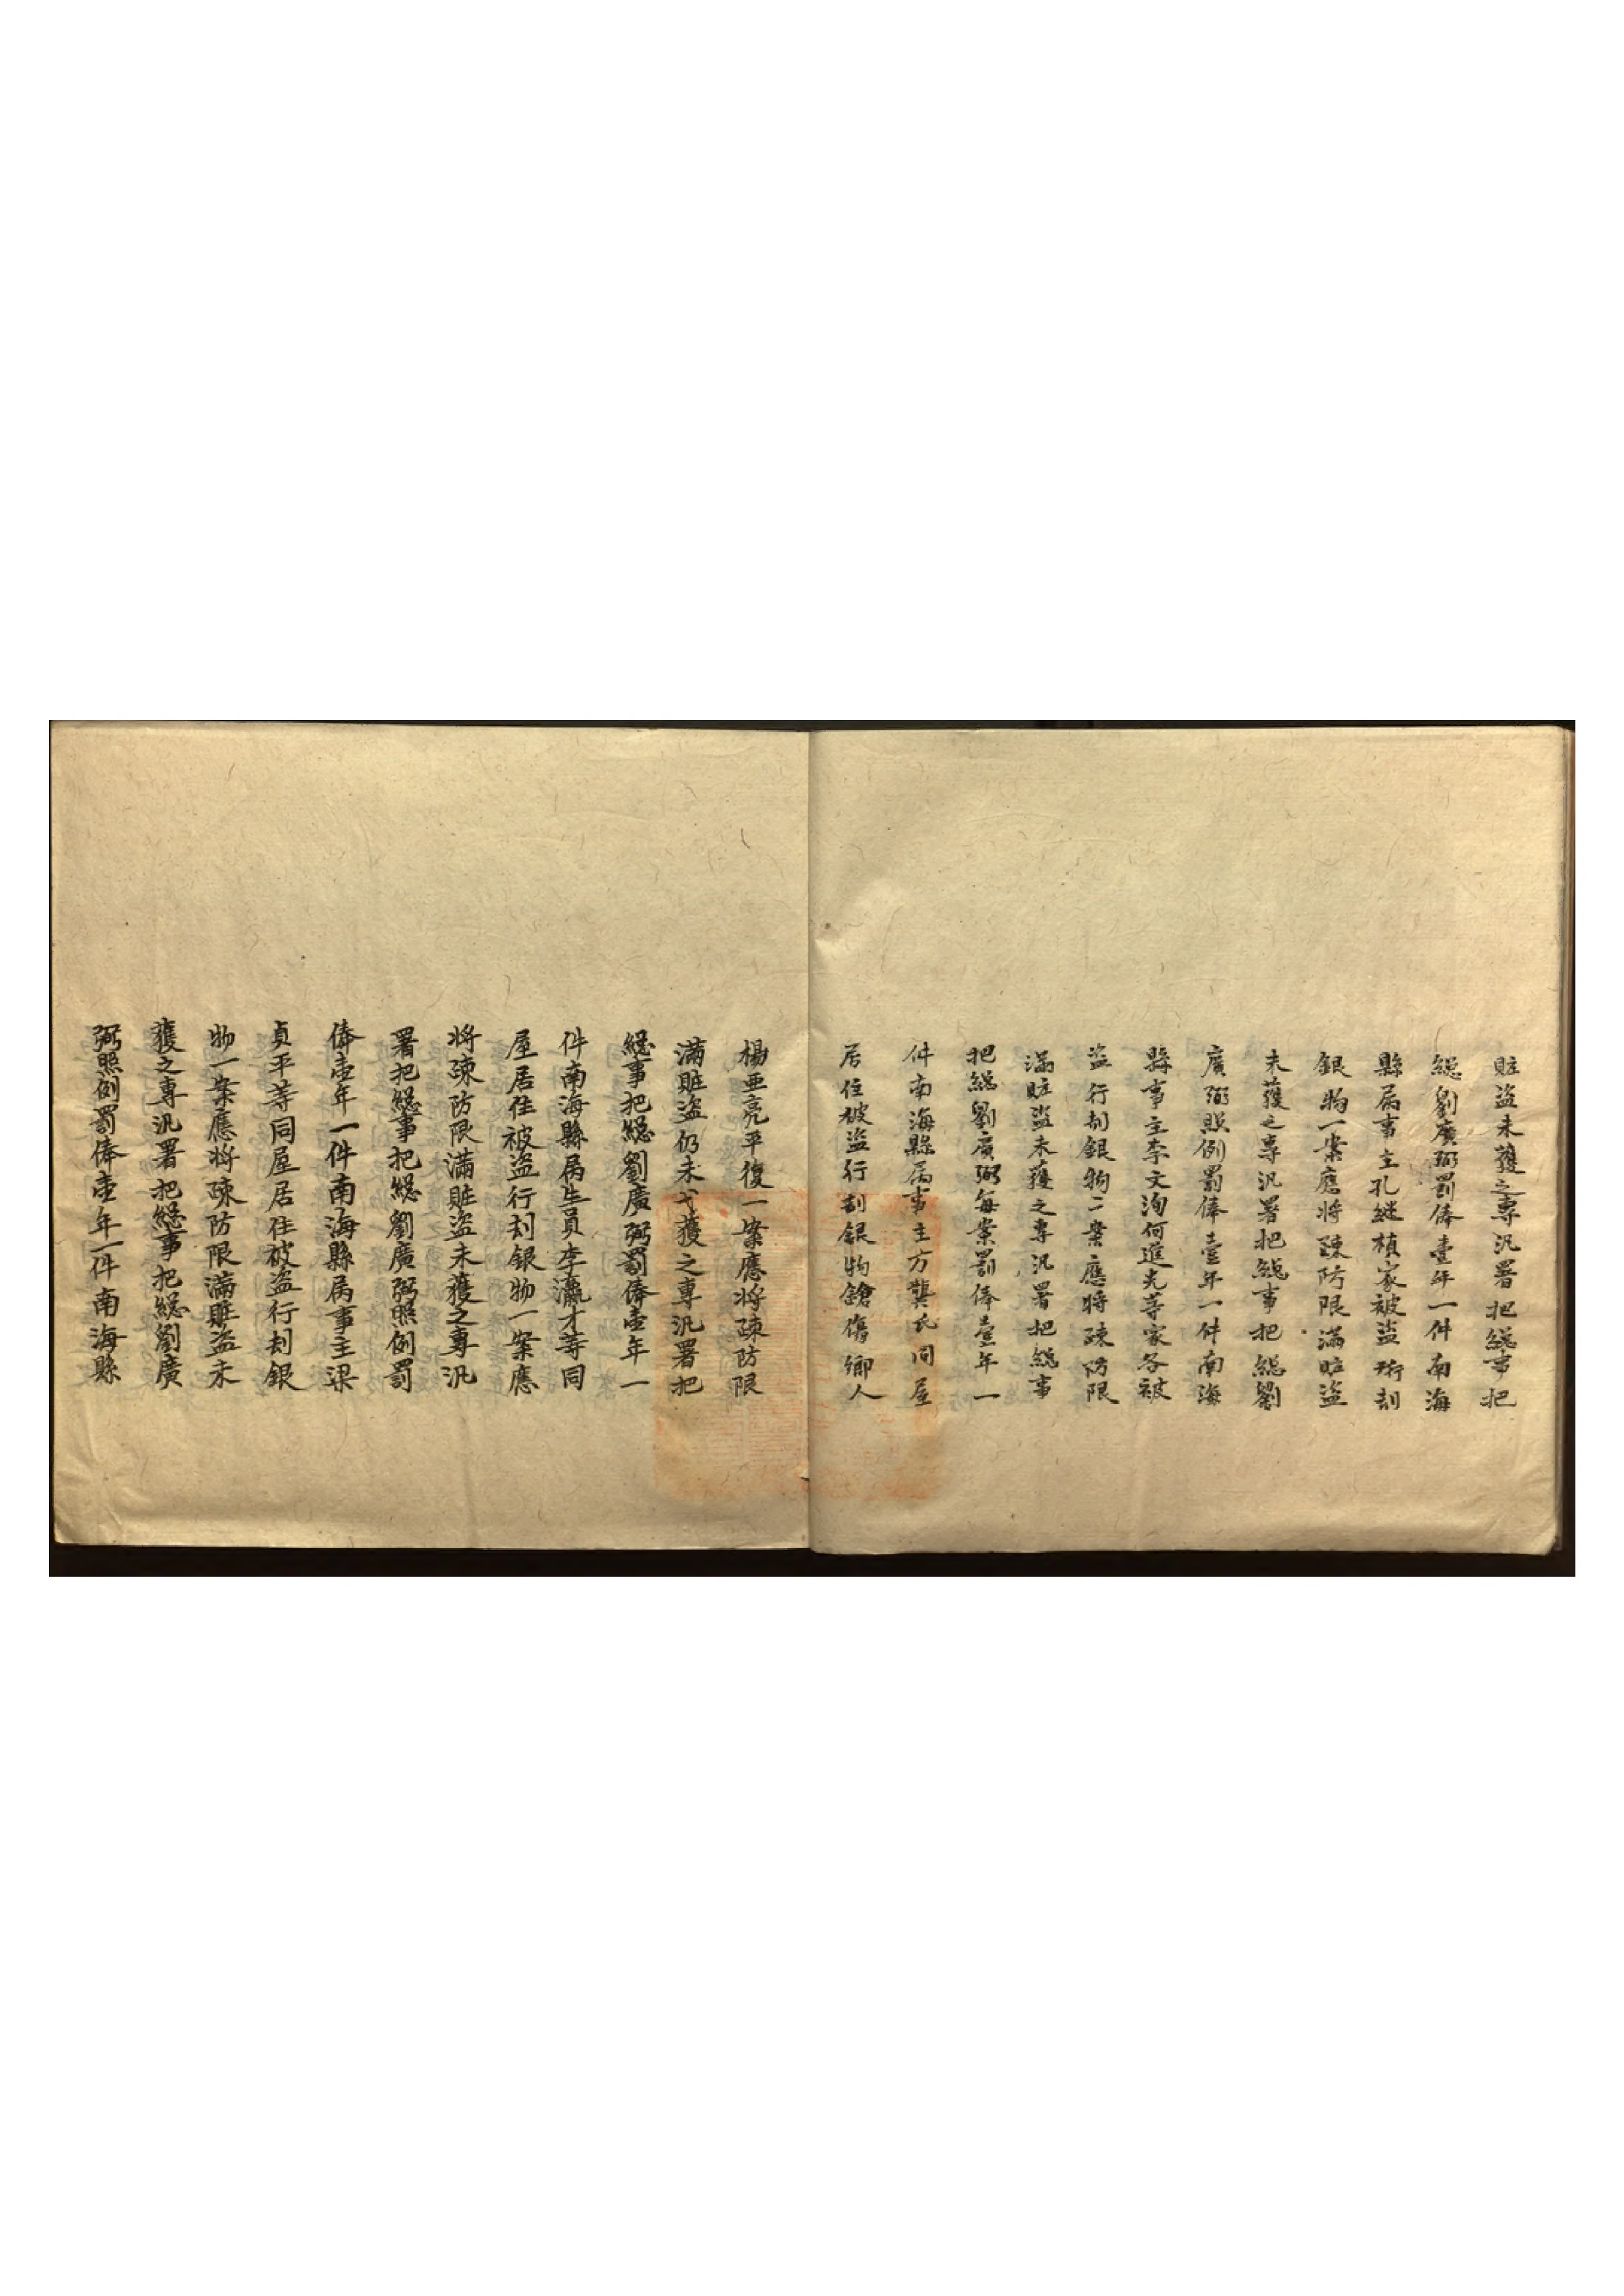 賍盗未獲之專汛署把総事把
総劉廣弼罰俸壹年一件南海
縣属事主孔継楨家被盗行刦
銀物一案應将疎防限滿賍盗
未獲之專汛署把総事把総劉
廣弼照例罰俸壹年一件南海
縣事主李文洵何進光等家各被
盗行刦銀物二案應将疎防限
滿賍盗未獲之專汛署把総事
把総劉廣弼每案罰俸壹年一
件南海縣属事主方龔氏同屋
居住被盗行刦銀物鎗傷鄉人
楊亜亮平復一案應将疎防限
滿賍盗仍未弋獲之專汛署把
総事把総劉廣弼罰俸壹年一
件南海縣属生員李瀛才等同
屋居住被盗行刦銀物一案應
将疎防限滿賍盗未獲之專汛
署把総事把総劉廣弼照例罰
俸壹年一件南海縣属事主梁
貞平等同屋居住被盗行刦銀
物一案應将疎防限滿賍盗未
獲之專汛署把総事把総劉廣
弼照例罰俸壹年一件南海縣